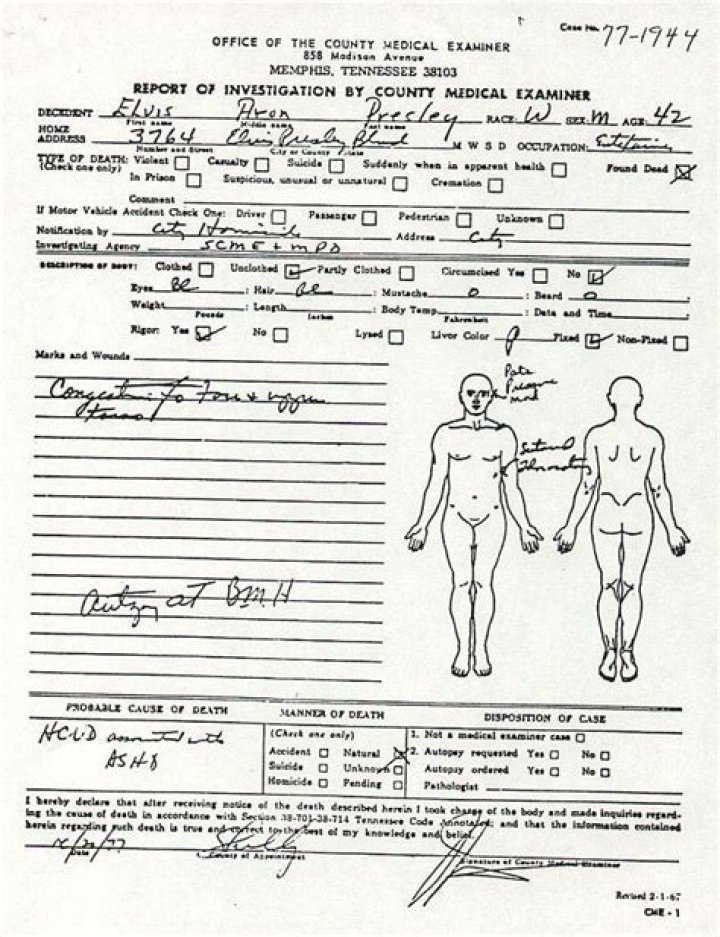 Case No. 77-1944
OFFICE OF THE COUNTY MEDICAL EXAMINER
858 Madison Avenue
MEMPHIS, TENNESSEE 38103
REPORT OF INVESTIGATION BY COUNTY MEDICAL EXAMINER
DECEDENT Elvis Aron Presley RACE: W SEX: M AGE: 42
First name Middle name Last name
HOME ADDRESS 3764 Elvis Presley Blvd M W S D OCCUPATION:
Number and Street City or County State
TYPE OF DEATH: Violent Casualty Suicide Suddenly when in apparent health Found Dead
(Check one only) In Prison Suspicious, unusual or unnatural Cremation
Comment
If Motor Vehicle Accident Check One: Driver Passenger Pedestrian Unknown
Notification by City Homicide Address City
Investigating Agency SCME + MPD
DESCRIPTION OF BODY: Clothed Unclothed Partly Clothed Circumcised Yes No
Eyes Bl : Hair Bl : Mustache 0 : Beard 0
Weight : Length : Body Temp. : Date and Time
Pounds Inches Fahrenheit
Rigor: Yes No Lysed Livor Color P Fixed Non-Fixed
Marks and Wounds
Pressure
Congestion to & upper
torso
at BMH
PROBABLE CAUSE OF DEATH MANNER OF DEATH DISPOSITION OF CASE
HCVD associated with
ASHD
(Check one only)
Accident Natural
Suicide Unknown
Homicide Pending
1. Not a medical examiner case
2. Autopsy requested Yes No
Autopsy ordered Yes No
Pathologist
I hereby declare that after receiving notice of the death described herein I took charge of the body and made inquiries regard-
ing the cause of death in accordance with Section 38-701-38-714 Tennessee Code Annotated; and that the information contained
herein regarding such death is true and correct to the best of my knowledge and belief.
Shelby
Date County of Appointment Signature of County Medical Examiner
Revised 2-1-67
CME - 1